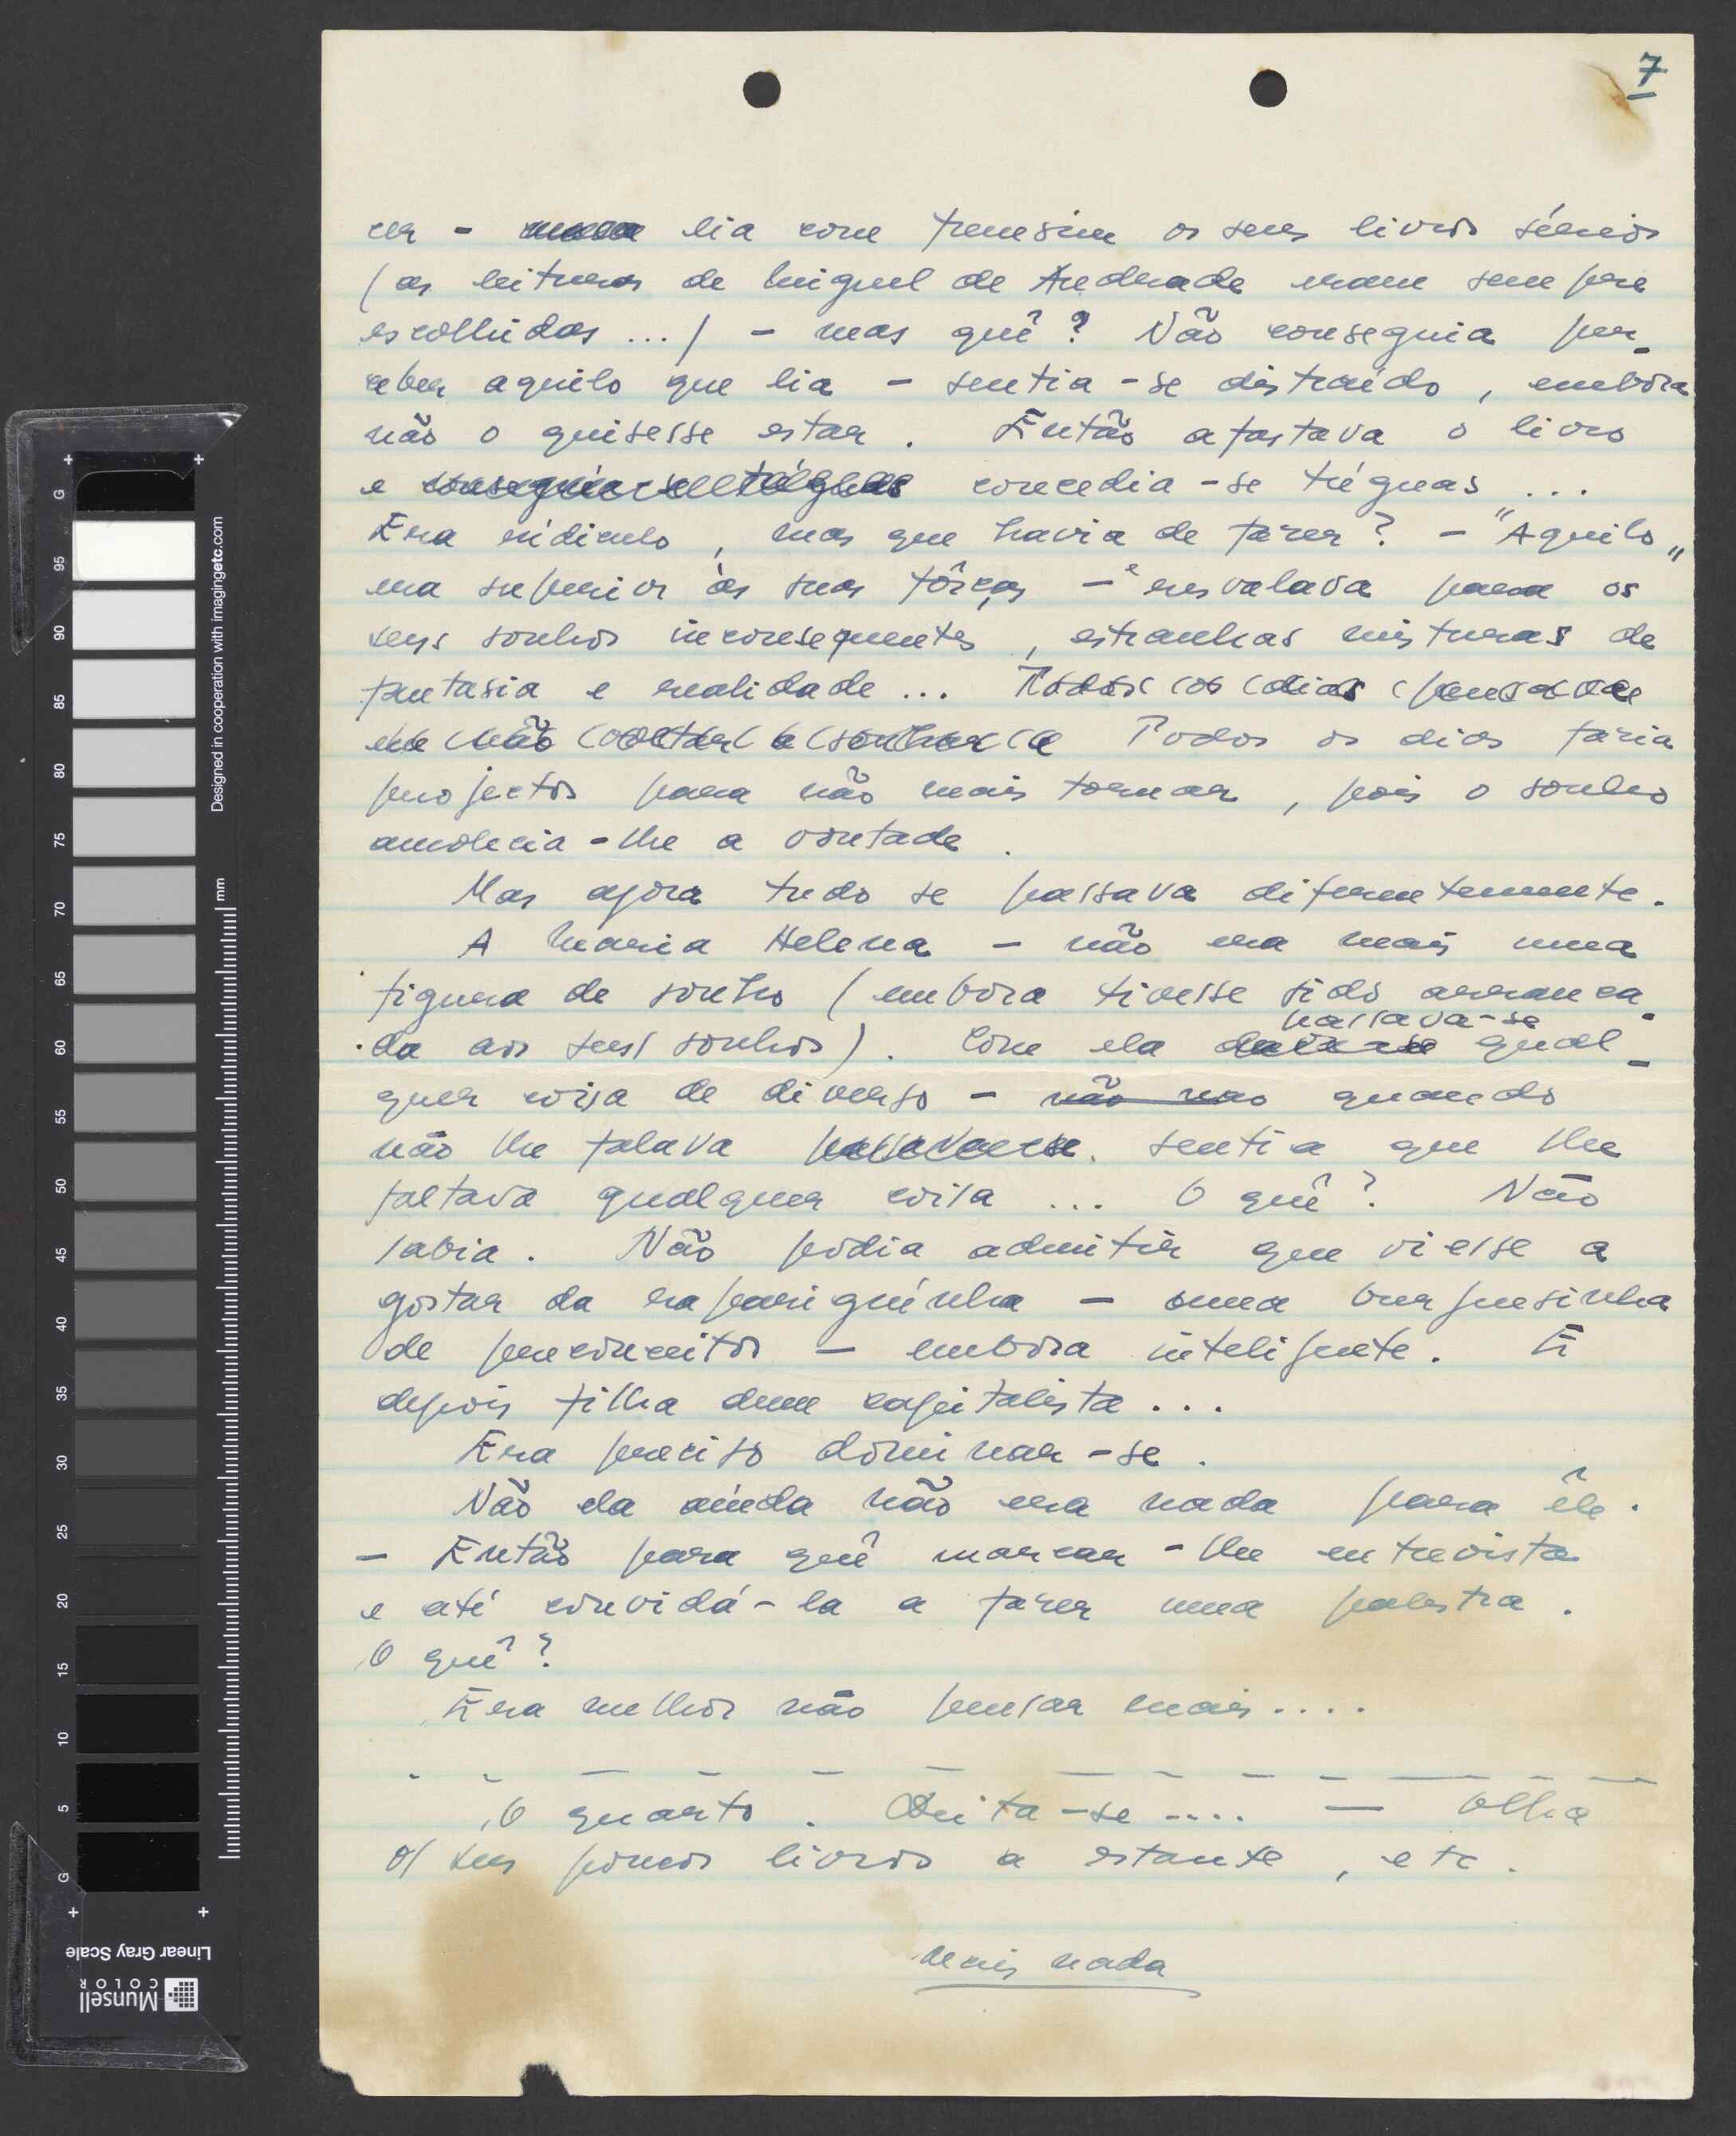 7
cer - lia com frenesim os seus livros sérios
(as leituras de Miguel de Andrade eram sempre
escolhidas ...) - mas quê? Não conseguia per-
ceber aquilo que lia - sentia-se distraído, embora
não o quisesse estar. Então afastava o livro
e conseguia-se tréguas concedia-se tréguas ...
Era ridículo, mas que havia de fazer? - "Aquilo"
era superior às suas fôrças - e resvalava para os
seus sonhos inconsequentes, estranhas misturas de
fantasia e realidade ... Todos os dias pensava
em não voltar a sonhar e Todos os dias fazia
projectos para não mais tornar, pois o sonho
amolecia-lhe a vontade.
Mas agora tudo se passava diferentemente.
A Maria Helena - não era mais uma
figura de sonho (embora tivesse sido arranca-
passava-se
-da aos seus sonhos). Com ela dava-se qual-
quer coisa de diverso - não nao quando
não lhe falava passava-se sentia que lhe
faltava qualquer coisa ... O quê? Não
sabia. Não podia admitir que viesse a
gostar da rapariguínha - uma burguesinha
de preconceitos - embora inteligente. E
depois filha dum capitalista ...
Era preciso dominar-se.
Não ela ainda não era nada para êle.
- Então para quê marcar-lhe entrevista
e até convidá-la a fazer uma palestra.
O quê?
Era melhor não pensar mais....
O quarto. Deita-se .... — Olha
os seus poucos livros a estante, etc.
Mais nada
Designed in cooperation with imagingetc.com
mm
G
95
90
85
80
75
70
65
60
55
50
45
40
35
30
25
20
15
10
5
G
Linear Gray Scale
Munsell
COLOR